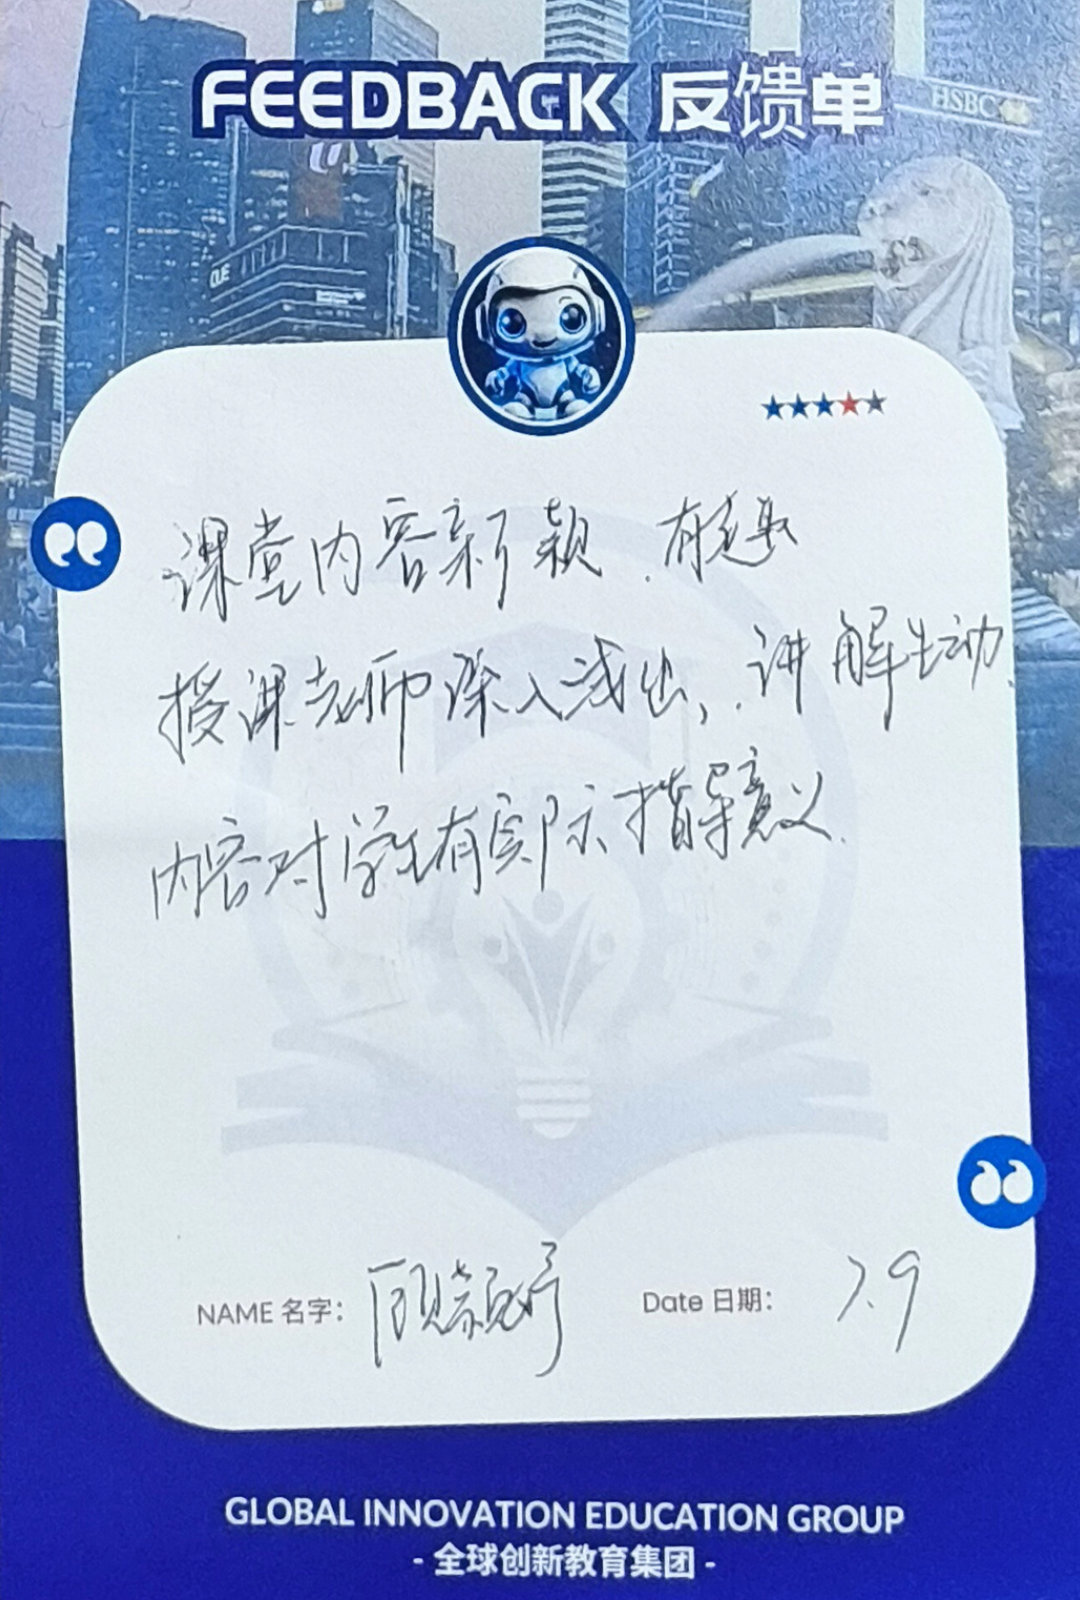 FEEDBACK 反馈单
HSBC
课堂内容新颖.有趣
授课老师深入浅出,.讲解生动.
内容对学生有实际指导意义.
NAME 名字:
Date 日期: 7.9
GLOBAL INNOVATION EDUCATION GROUP
- 全球创新教育集团 -